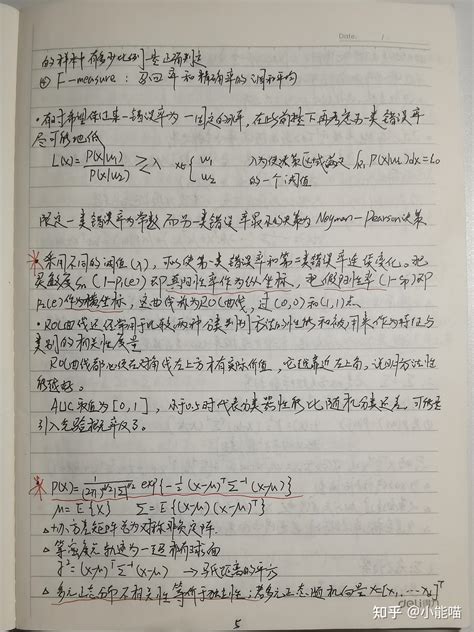 Date. /
的样本有多少比例是正确判定
④ F-measure: 召回率和精确率的调和平均
·有时希望保证某一错误率为一固定的水平，在此前提下再考虑另一类错误率
尽可能地低
L(x)= P(x|ω₁) / P(x|ω₂) ≷ λ x∈{ ω₁ ω₂ λ为使决策区域满足 ∫R₁ P(x|ω₂)dx=ε₀
的一个阈值
限定一类错误率为常数而另一类错误率最小的决策为 Neyman-Pearson决策
* 采用不同的阈值(λ)，可以使第一类错误率和第二类错误率连续变化。把
灵敏度Sn (1-P₁(e)) 即真阳性率作为纵坐标，把假阳性率(1-Sp)即
P₂(e)作为横坐标，这曲线称为ROC曲线，过(0,0)和(1,1)点。
·ROC曲线还经常用于比较两种分类判别方法的性能和被用来作为特征与
类别的相关性度量
ROC曲线都必须在对角线左上方才有实际价值，它越靠近左上角，说明方法性
能越好。
AUC取值为[0,1]，小于0.5时代表分类器性能比随机分类还差，可能是
引入先验概率反了。
* P(x)= 1/((2π)^{d/2}|Σ|^{1/2}) exp{-½(x-μ)ᵀΣ⁻¹(x-μ)}
μ=E{x} Σ=E{(x-μ)(x-μ)ᵀ}
△协方差矩阵总为对称非负定阵.
△等密度点轨迹为一超椭球面
γ²=(x-μ)ᵀΣ⁻¹(x-μ) → 马氏距离的平方
△多元正态分布不相关性等价于独立性；若多元正态随机向量 x=[x₁, ⋯ x_d]ᵀ
delimi
知乎 @小能喵
5